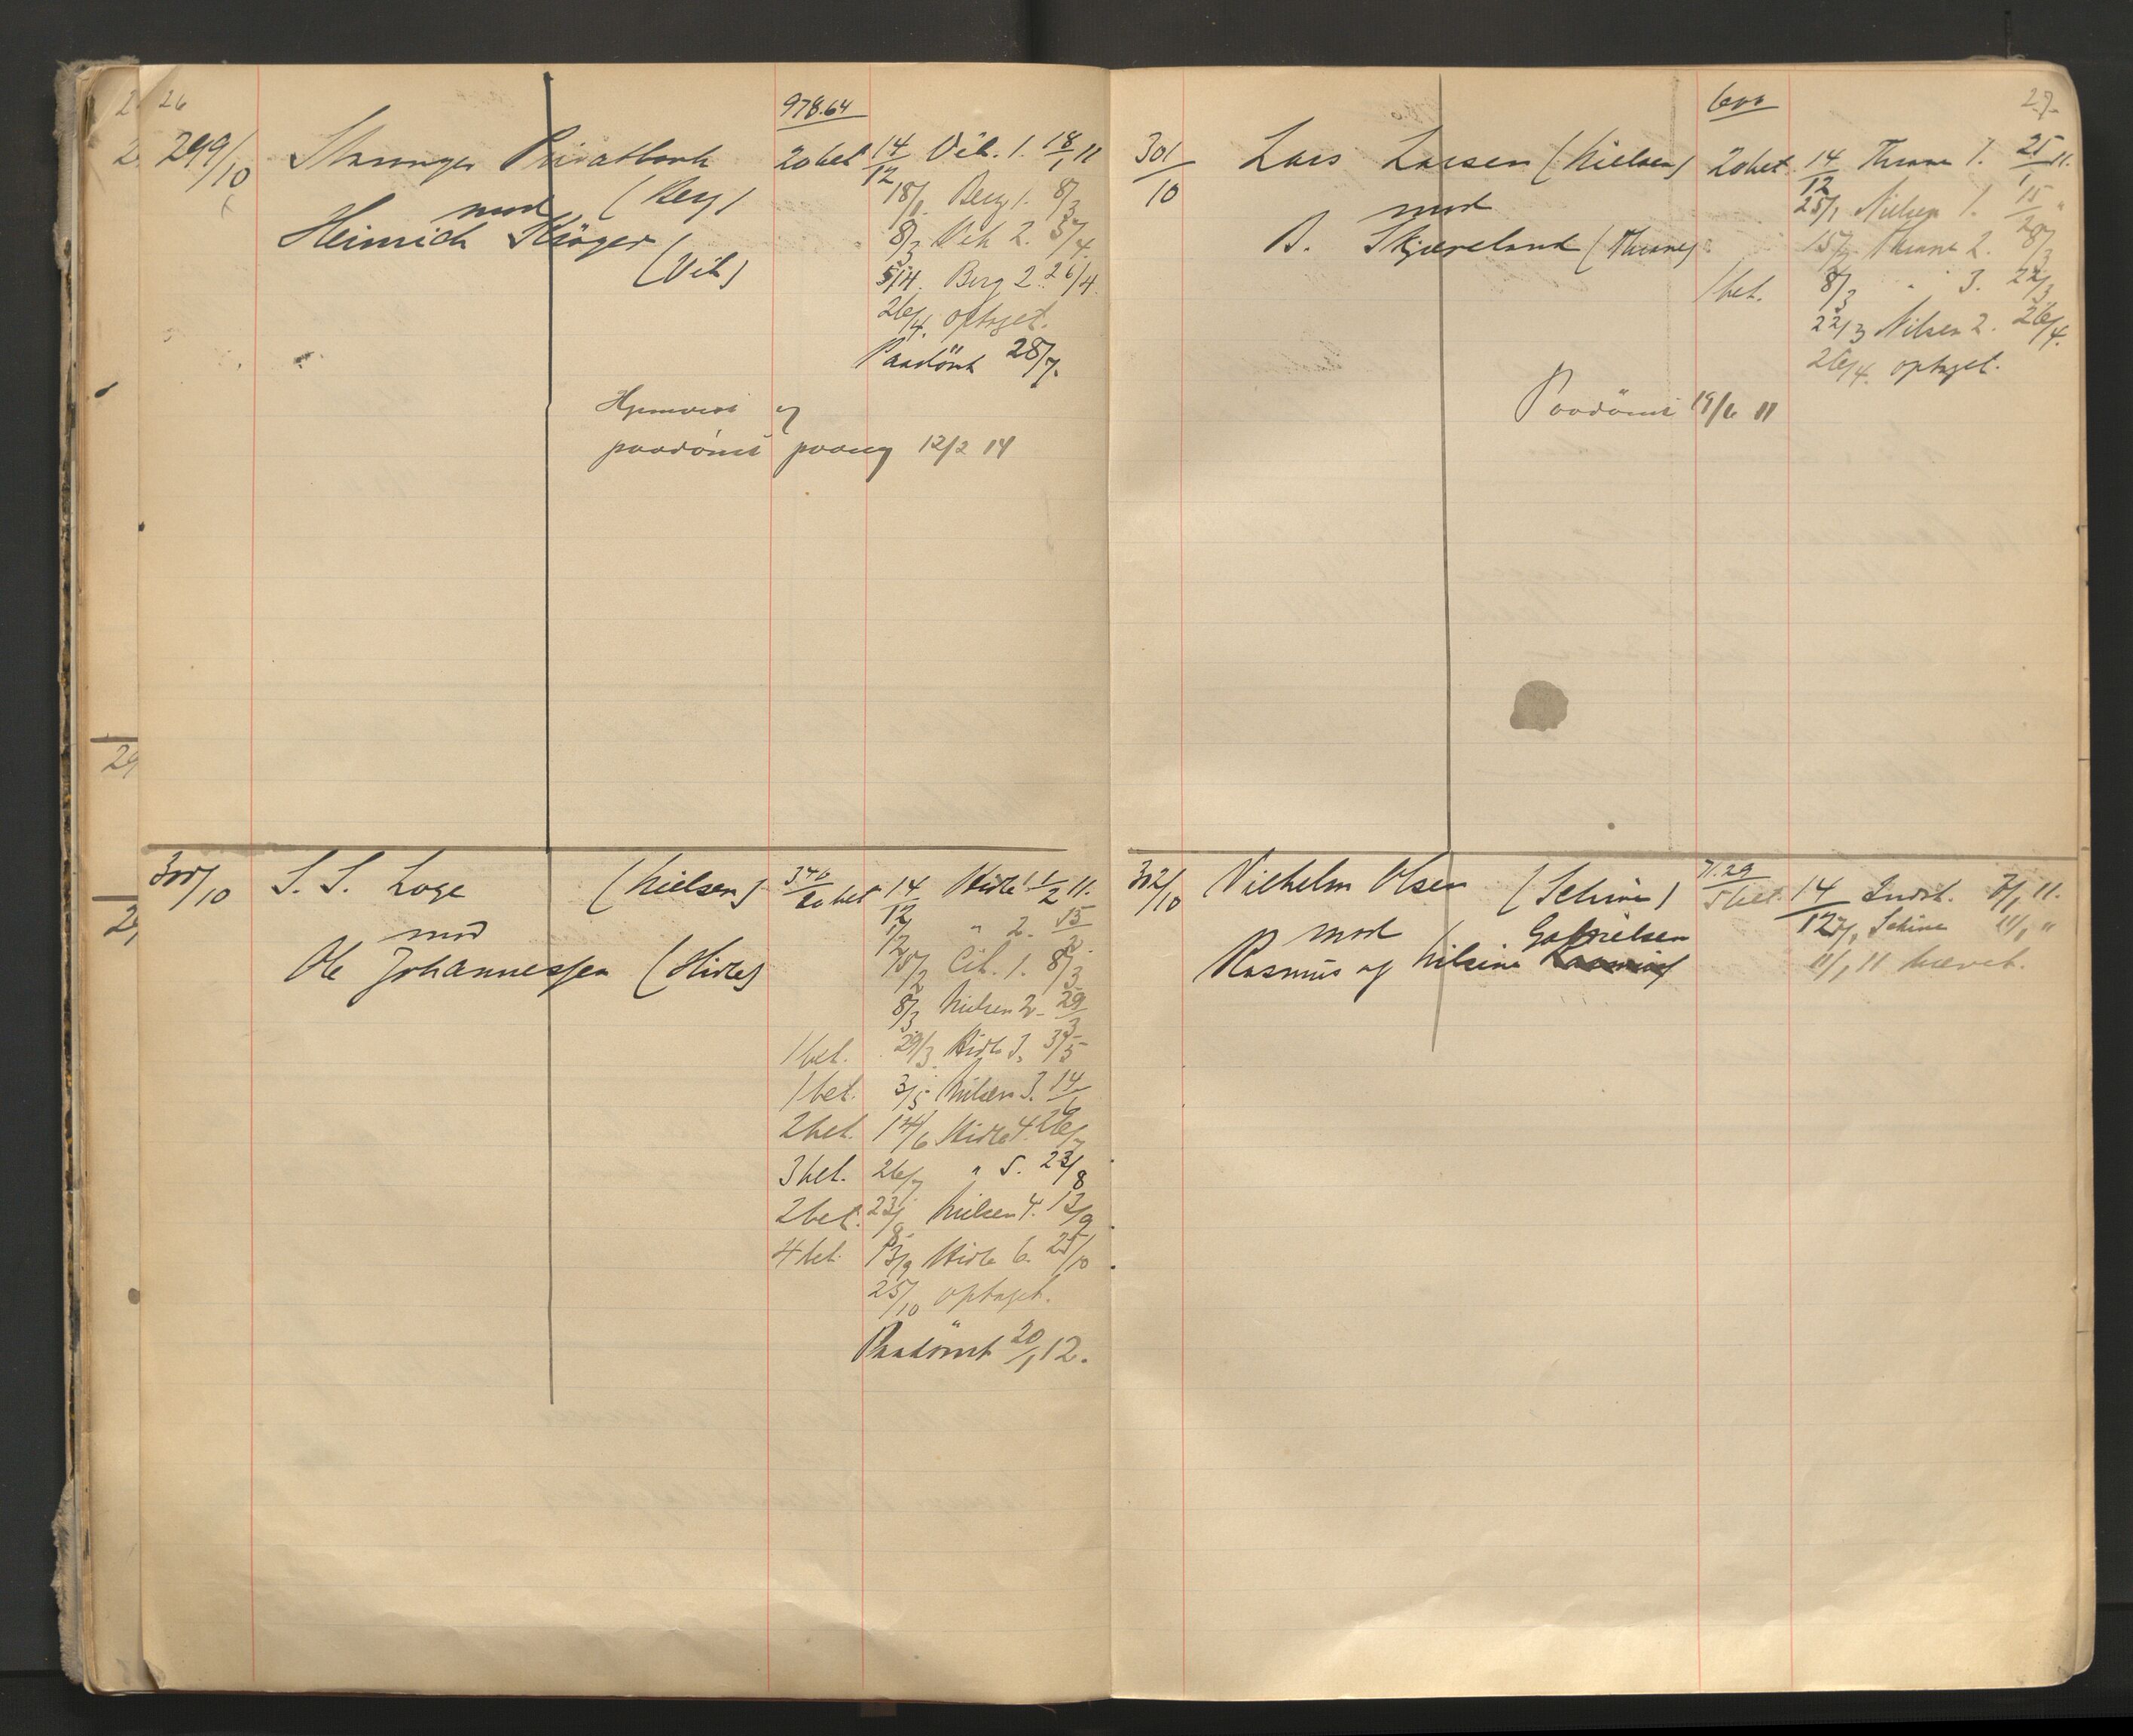 26
978.64
299/10 Stavanger Privatbank 20 bet 14/12 Vik. 1. 18/1 11
(Berg) 18/1 Berg 1. 8/3
mod
Heinrich Kröger 8/3 Vik 2. 5/4.
(Vik) 5/4. Berg 2. 26/4.
26/4. optaget.
Paadömt 28/7.
Hjemvist og
paadömt paany 12/2 14
300/10 S. S. Loge (Nielsen) 370 20 bet 14/12 Hidle 1. 1/2 11.
mod 1/2 " 2. 15/2.
Ole Johannessen (Hidle) 15/2 Cit. 1. 8/3
8/3 Nielsen 2. 29/3
1 bet. 29/3 Hidle 3. 3/5
1 bet. 3/5 Nielsen 3. 14/6
2 bet. 14/6 Hidle 4. 26/7
3 bet. 26/7 " 5. 23/8
2 bet. 23/8 Nielsen 4. 13/9.
4 bet. 13/9 Hidle 6. 25/10.
25/10 optaget.
Paadömt 20/1 12.
27.
600
301/10 Lars Larsen (Nielsen) 20 bet. 14/12 Thrane 1. 25/1 11.
mod 25/1 Nielsen 1. 15/2 "
A. Skjæveland (Thrane) 15/2 Thrane 2. 8/3
1 bet. 8/3 " 3. 22/3
22/3 Nilsen 2. 26/4.
26/4. optaget.
Paadömt 19/6 11
71.29
302/10 Vilhelm Olsen (Schiøn) 5 bet. 14/12 Indst. 7/1 11.
mod Gabrielsen 7/1 Schiøn 11/1 "
Rasmus og Nilsine 11/1 11 hævet.